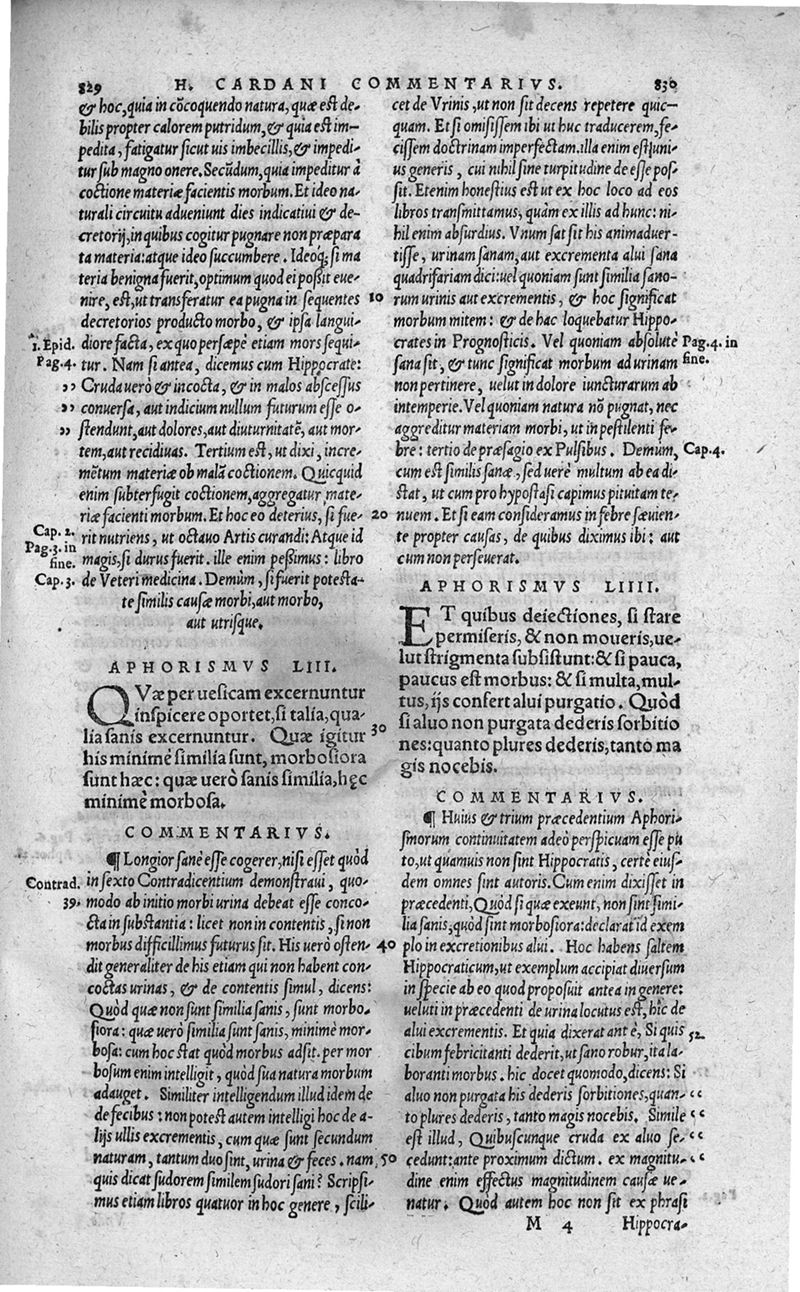 829 H. CARDANI COMMENTARIVS. 830
& hoc, quia in cõcoquendo natura, quæ est de-
bilis propter calorem putridum, & quia est im-
pedita, fatigatur sicut uis imbecillis, & impedi-
tur sub magno onere. Secũdum, quia impeditur à
coctione materiæ facientis morbum. Et ideo na-
turali circuitu adueniunt dies indicatiui & de-
cretorij, in quibus cogitur pugnare non præpara
ta materia: atque ideo succumbere. Ideoq́; si ma
teria benigna fuerit, optimum quod ei possit eue-
nire, est, ut transferatur ea pugna in sequentes
decretorios producto morbo, & ipsa langui-
diore facta, ex quo persæpè etiam mors sequi-
tur. Nam si antea, dicemus cum Hippocrate:
Cruda uerò & incocta, & in malos abscessus
conuersa, aut indicium nullum futurum esse o-
stendunt, aut dolores, aut diuturnitatẽ, aut mor-
tem, aut recidiuas. Tertium est, ut dixi, incre-
mẽtum materiæ ob malã coctionem. Quicquid
enim subterfugit coctionem, aggregatur mate-
riæ facienti morbum. Et hoc eo deterius, si fue-
rit nutriens, ut octauo Artis curandi: Atque id
magis, si durus fuerit. ille enim pessimus: libro
de Veteri medicina. Demùm, si fuerit potesta-
te similis causæ morbi, aut morbo,
aut utrisque.
1. Epid.
Pag. 4.
,,
,,
,,
Cap. 2.
Pag. 3. in
fine.
Cap. 3.
APHORISMVS LIII.
QVæ per uesicam excernuntur
inspicere oportet, si talia, qua-
lia sanis excernuntur. Quæ igitur
his minimè similia sunt, morbosiora
sunt hæc: quæ uerò sanis similia, hęc
minimè morbosa.
COMMENTARIVS.
¶ Longior sanè esse cogerer, nisi esset quòd
in sexto Contradicentium demonstraui, quo-
modo ab initio morbi urina debeat esse conco-
cta in substantia: licet non in contentis, si non
morbus difficillimus futurus sit. His uerò osten-
dit generaliter de his etiam qui non habent con-
coctas urinas, & de contentis simul, dicens:
Quòd quæ non sunt similia sanis, sunt morbo-
siora: quæ uerò similia sunt sanis, minimè mor-
bosa: cum hoc stat quòd morbus adsit. per mor
bosum enim intelligit, quòd sua natura morbum
adauget. Similiter intelligendum illud idem de
de fecibus: non potest autem intelligi hoc de a-
lijs ullis excrementis, cum quæ sunt secundum
naturam, tantum duo sint, urina & feces. nam,
quis dicat sudorem similem sudori sani? Scripsi-
mus etiam libros quatuor in hoc genere, scili-
Contrad.
39.
10
20
30
40
50
cet de Vrinis, ut non sit decens repetere quic-
quam. Et si omisissem ibi ut huc traducerem, fe-
cissem doctrinam imperfectam. illa enim est iuni-
us generis, cui nihil sine turpitudine de esse pos-
sit. Etenim honestius est ut ex hoc loco ad eos
libros transmittamus, quàm ex illis ad hunc: ni-
hil enim absurdius. Vnum sat sit his animaduer-
tisse, urinam sanam, aut excrementa alui sana
quadrifariam dici: uel quoniam sunt similia sano-
rum urinis aut excrementis, & hoc significat
morbum mitem: & de hac loquebatur Hippo-
crates in Prognosticis. Vel quoniam absolutè
sana sit, & tunc significat morbum ad urinam
non pertinere, uelut in dolore iuncturarum ab
intemperie. Vel quoniam natura nõ pugnat, nec
aggreditur materiam morbi, ut in pestilenti fe-
bre: tertio de præsagio ex Pulsibus. Demum,
cum est similis sanæ, sed uerè multum ab ea di-
stat, ut cum pro hypostasi capimus pituitam te-
nuem. Et si eam consideramus in febre sæuien-
te propter causas, de quibus diximus ibi: aut
cum non perseuerat.
Pag. 4. in
fine.
Cap. 4.
APHORISMVS LIIII.
ET quibus deiectiones, si stare
permiseris, & non moueris, ue-
lut strigmenta subsistunt: & si pauca,
paucus est morbus: & si multa, mul-
tus, ijs confert alui purgatio. Quòd
si aluo non purgata dederis sorbitio
nes: quanto plures dederis, tanto ma
gis nocebis.
COMMENTARIVS.
¶ Huius & trium præcedentium Aphori-
smorum continuitatem adeò perspicuam esse pu
to, ut quamuis non sint Hippocratis, certè eius-
dem omnes sint autoris. Cum enim dixisset in
præcedenti, Quòd si quæ exeunt, non sint simi-
lia sanis, quòd sint morbosiora: declarat id exem
plo in excretionibus alui. Hoc habens saltem
Hippocraticum, ut exemplum accipiat diuersum
in specie ab eo quod proposuit antea in genere:
ueluti in præcedenti de urina locutus est, hîc de
alui excrementis. Et quia dixerat antè, Si quis
cibum febricitanti dederit, ut sano robur, ita la-
boranti morbus. hic docet quomodo, dicens: Si
aluo non purgata his dederis sorbitiones, quan-
to plures dederis, tanto magis nocebis. Simile
est illud, Quibuscunque cruda ex aluo se-
cedunt: ante proximum dictum. ex magnitu-
dine enim effectus magnitudinem causæ ue-
natur. Quòd autem hoc non sit ex phrasi
52.
‘‘
‘‘
‘‘
‘‘
M 4 Hippocra-